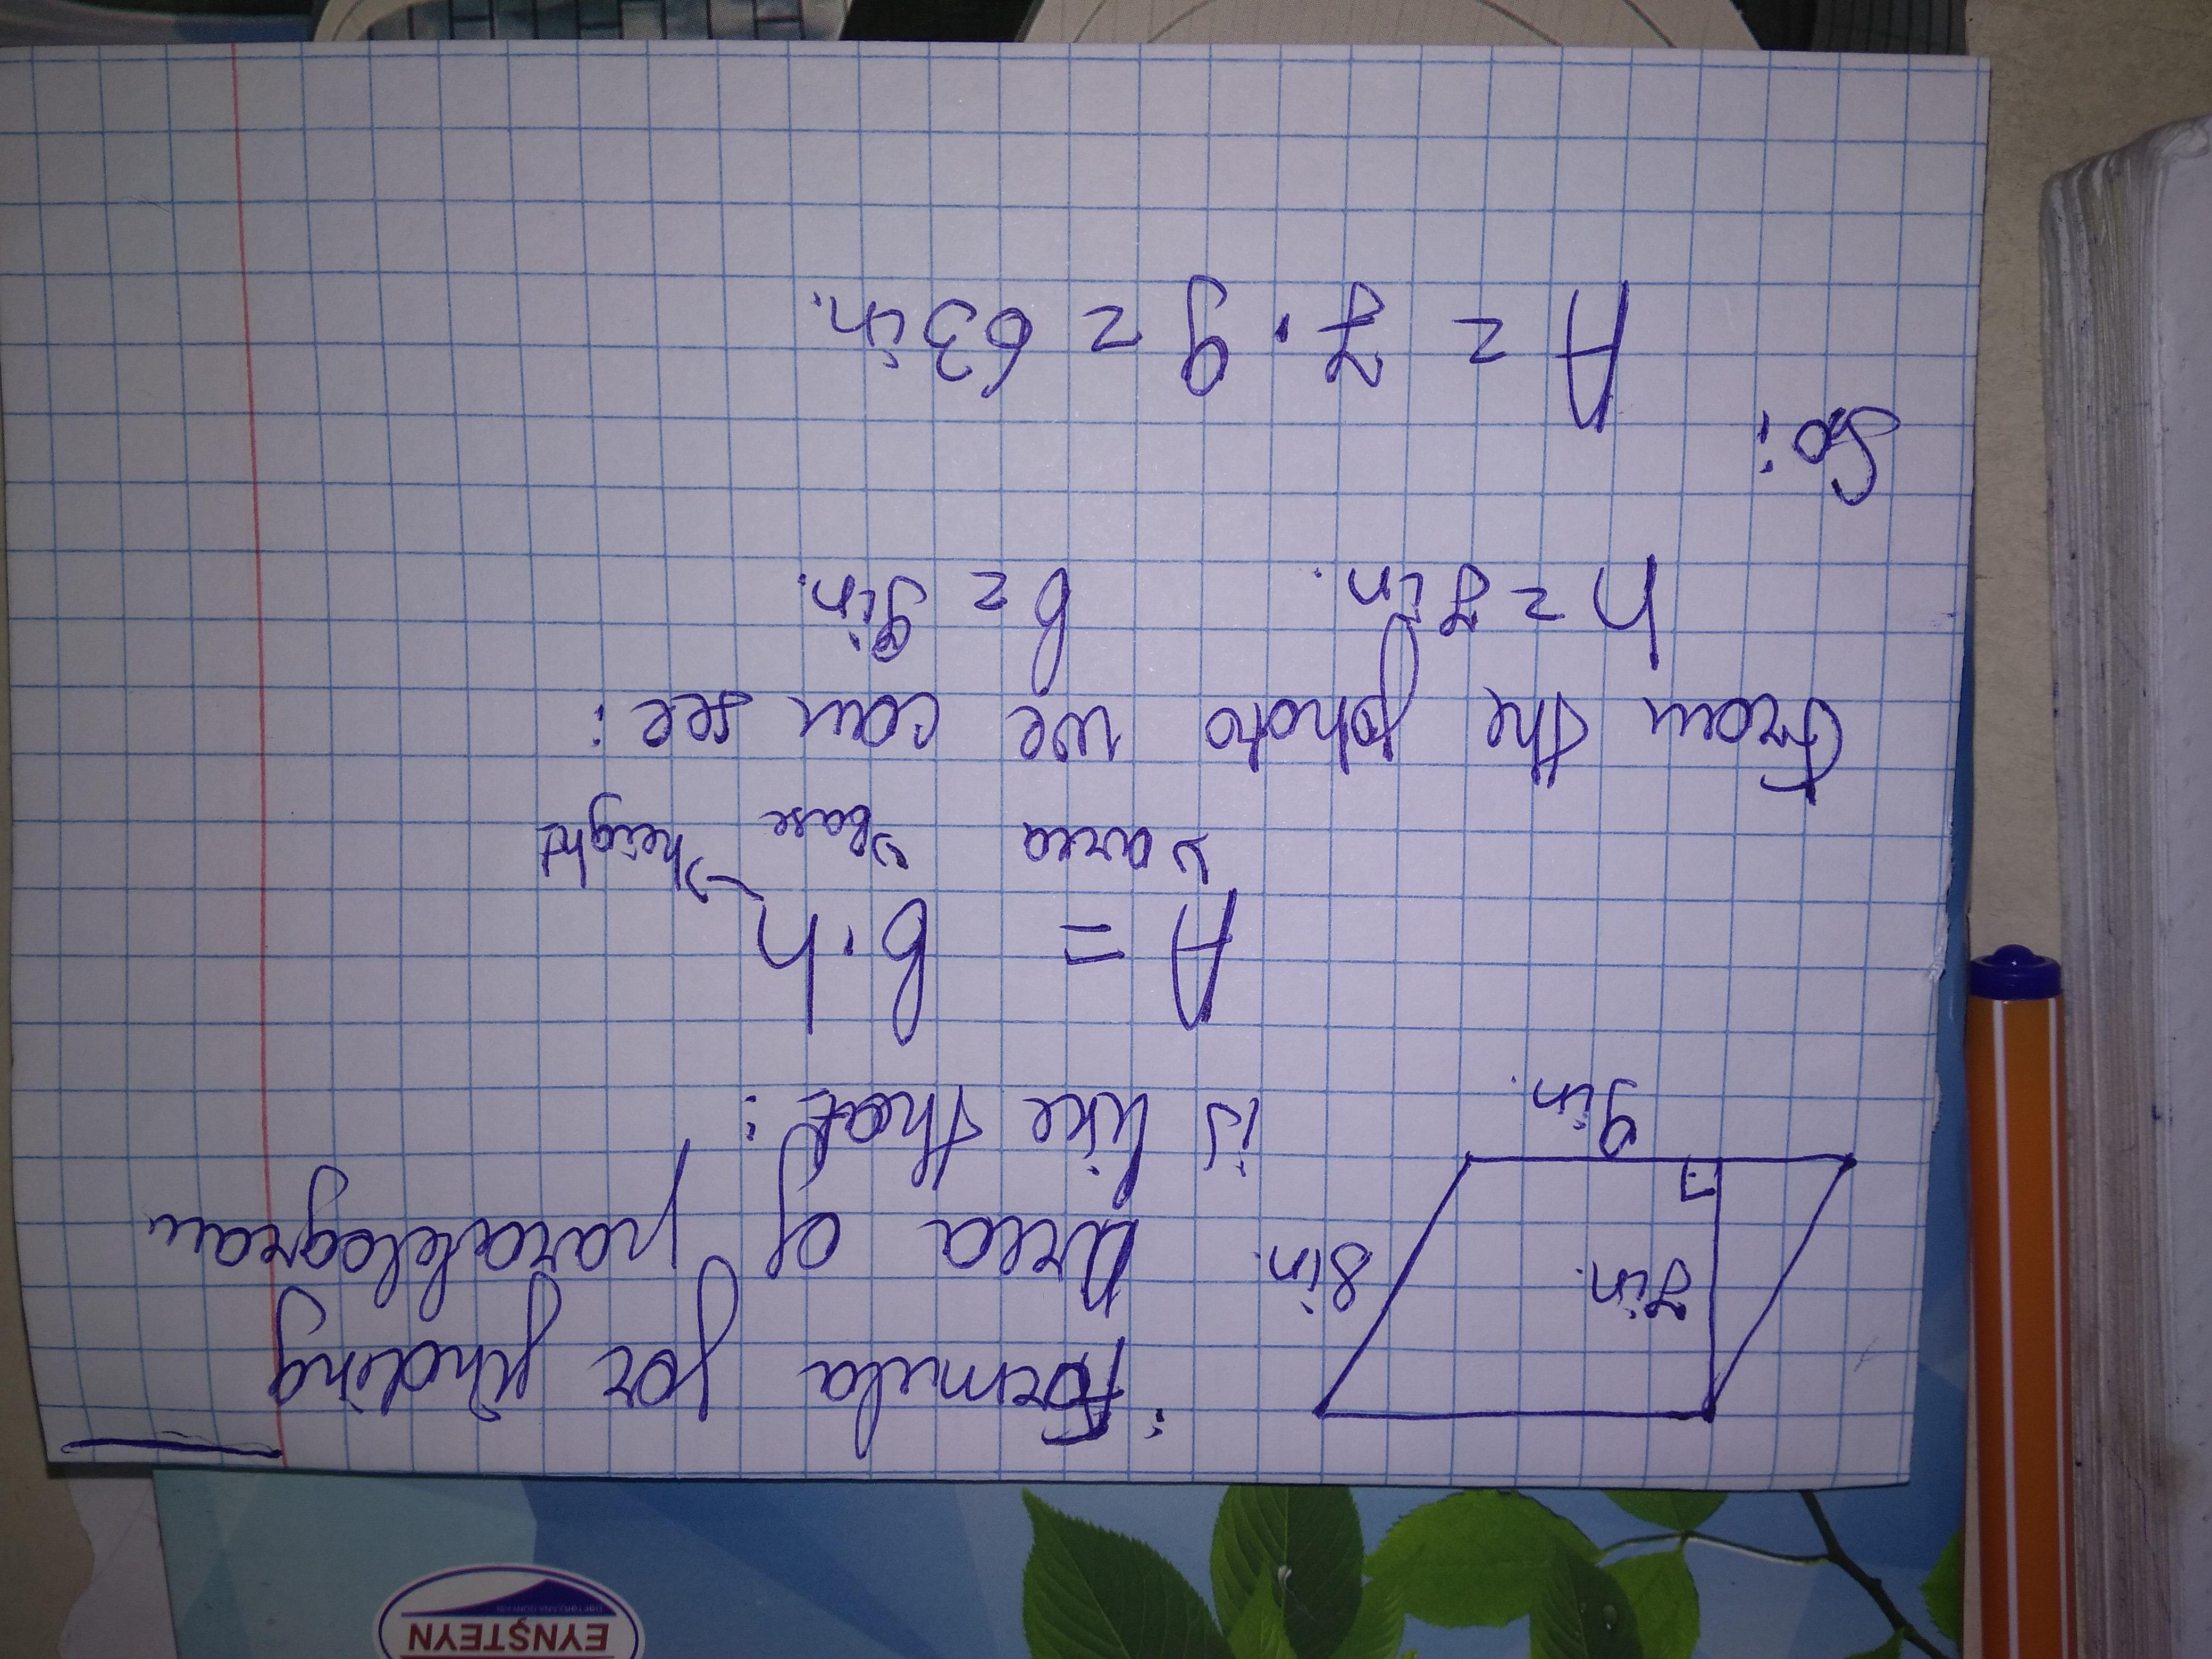 : Formula for finding
Area of paralelogram
is like that:
7in.
8in.
9in.
A = b·h
area base height
From the photo we can see:
h = 7in. b = 9in.
So:
A = 7 · 9 = 63in.
EYNŞTEYN